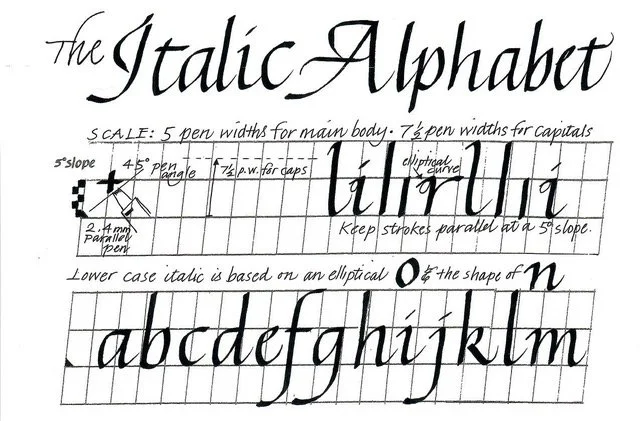 The Italic Alphabet
SCALE: 5 pen widths for main body. 7½ pen widths for capitals
5° slope
45° pen angle
7½ p.w. for caps
elliptical curve
2.4 mm Parallel pen
Keep strokes parallel at a 5° slope.
Lower case italic is based on an elliptical o & the shape of n
abcdefghijklm